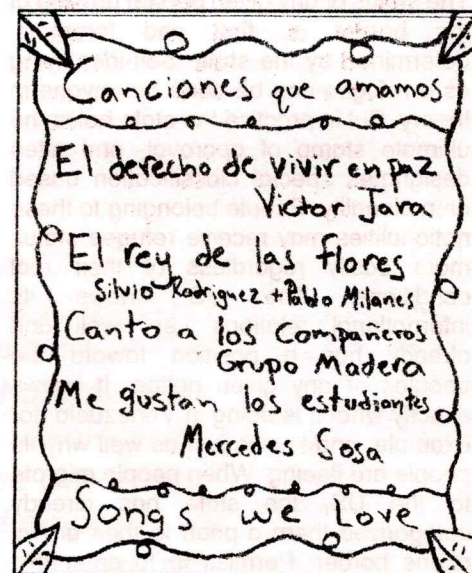 Canciones que amamos
El derecho de vivir en paz
Victor Jara
El rey de las flores
Silvio Rodriguez + Pablo Milanes
Canto a los Compañeros
Grupo Madera
Me gustan los estudiantes
Mercedes Sosa
Songs we Love